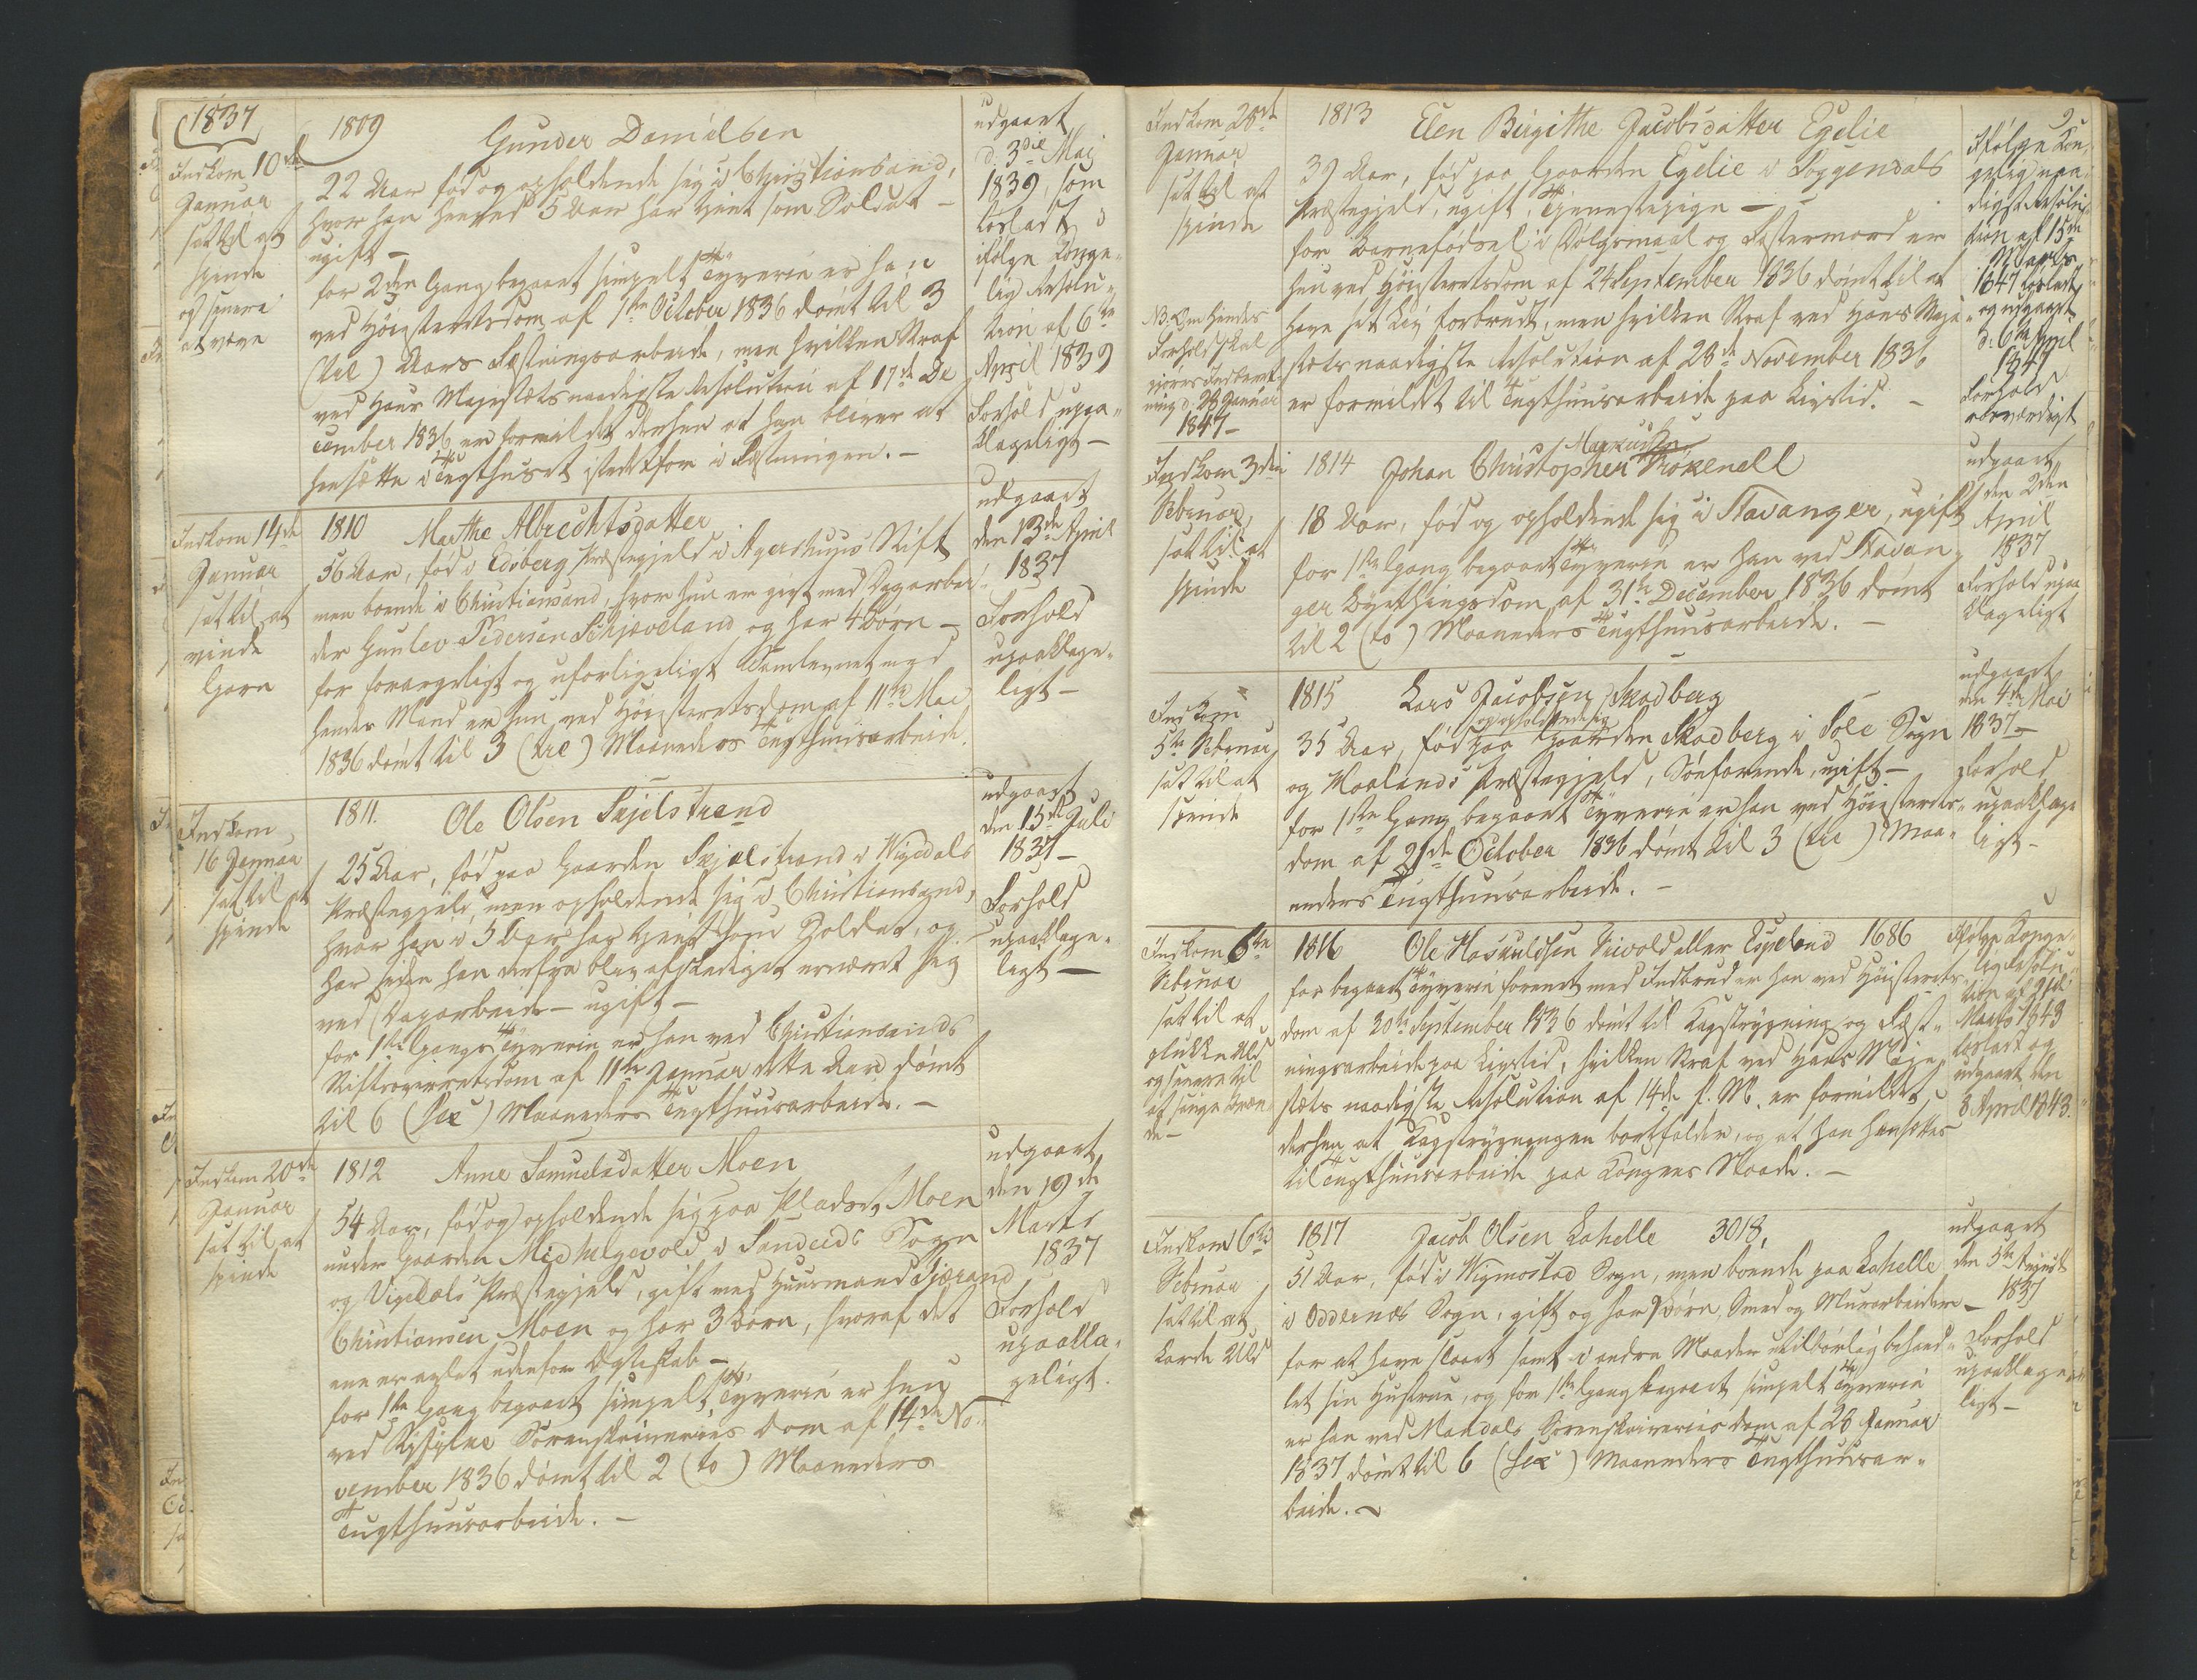 1837
Indkom 10de
Januar
sat til at
spinde
og senere
at væve
1809
Gunder Danielsen
22 Aar fød og opholdende sig i Christiansand,
hvor han henved 5 Aar har tjent som Soldat –
ugift –
for 2den Gang begaaet simpelt Tyverie er han
ved Høiesteretsdom af 1ste October 1836 dømt til 3
(tre) Aars Fæstningsarbeide, men hvilken Straf
ved Hans Majestæts naadigste Resolution af 17de De
cember 1836 er formildet derhen at han bliver at
hensætte i Tugthuset istedetfor i Fæstningen. –
udgaaet
d. 3die Mai
1839, som
løsladt
ifølge Konge-
lig Resolu-
tion af 6te
April 1839
Forhold upaa-
klageligt –
Indkom 14de
Januar
sat til at
vinde
Garn
1810 Marthe Albrechtsdatter
56 Aar, fød i Edsberg Præstegjeld i Agershuus Stift
men boende i Christiansand, hvor hun er givt med Dagarbei-
der Gunlev Pedersen Schjæveland og har 4 Børn –
for forargeligt og uforligeligt Samlevnet med
hendes Mand er hun ved Høiesteretsdom af 11te Mai
1836 dømt til 3 (tre) Maaneders Tugthuusarbeide.
udgaaet
den 13de April
1837
Forhold
upaaklage-
ligt –
Indkom
16 Januar
sat til at
spinde
1811. Ole Olsen Skjelstrand
25 Aar, fød paa Gaarden Skjælstrand i Vigedals
Præstegjeld, men opholdende sig i Christiansand,
hvor han i 5 Aar har tjent som Soldat, og
har siden han derfra blev afskediget ernæret sig
ved Dagarbeide – ugift –
for 1ste Gangs Tyverie er han ved Christiansands
Stiftsoverretsdom af 11te Januar dette Aar dømt
til 6 (sex) Maaneders Tugthuusarbeide. –
udgaaet
den 15de Juli
1837 –
Forhold
upaaklage-
ligt –
Indkom 20de
Januar
sat til at
spinde
1812 Anne Samuelsdatter Moen
54 Aar, fød og opholdende sig paa Pladset Moen
under Gaarden Midhelgevold i Sandeids Sogn
og Vigedals Præstegjeld, gift med Huusmand Sjærand
Christiansen Moen og har 3 Børn, hvoraf det
ene er avlet udenfor Ægteskab –
for 1ste Gang begaaet simpelt Tyverie er hun
ved Ryfylke Sorenskriveries Dom af 14de No-
vember 1836 dømt til 2 (to) Maaneders
Tugthuusarbeide. –
udgaaet
den 19de
Marts
1837
Forhold
upaakla-
geligt.
2
Indkom 28de
Januar
sat til at
spinde
NB. Om hendes
Forhold skal
gjøres Indberet-
ning d. 28 Januar
1847 –
1813 Elen Birgithe Jacobsdatter Egelie
39 Aar, fød paa Gaarden Egelie i Soggendals
Præstegjeld, ugift, Tjenestepige –
for Barnefødsel i Dølgsmaal og Fostermord er
hun ved Høiesteretsdom af 24 September 1836 dømt til at
have sit Liv forbrudt, men hvilken Straf ved Hans Maje-
stæts naadigste Resolution af 28de November 1836
er formildet til Tugthuusarbeide paa Livstid. –
Ifølge Kon-
gelig naa-
digst Resolu-
tion af 15de
Marts
1847 løsladt
og udgaaet
d. 6te April
1847
Forhold
roesværdigt
Indkom 3die
Februar,
sat til at
spinde
Markusen
1814 Johan Christopher Trøkenell
18 Aar, fød og opholdende sig i Stavanger, ugift
for 1ste Gang begaaet Tyverie er han ved Stavan-
ger Byethingsdom af 31te December 1836 dømt
til 2 (to) Maaneders Tugthuusarbeide. –
udgaaet
den 2den
April
1837
Forhold upaa
klageligt
Indkom
5te Februar
sat til at
spinde
1815 Lars Jacobsen Skadberg
og opholdende sig
35 Aar, fød paa Gaarden Skadberg i Sole Sogn
og Haalands Præstegjeld, Søefarende, ugift –
for 1ste Gang begaaet Tyverie er han ved Høiesterets-
dom af 21de October 1836 dømt til 3 (tre) Maa-
neders Tugthuusarbeide. –
udgaaet
den 4de Mai
1837 –
Forhold
upaaklage
ligt –
Indkom 6te
Februar
sat til at
plukke Uld
og senere til
at
1816 Ole Haskuldsen Sivold eller Espeland 1686
for begaaet Tyverie forenet med Indbrud er han ved Høiesterets-
dom af 30te September 1836 dømt til Kagstrygning og Fæst-
ningsarbeide paa Livstid, hvilken Straf ved Hans Maje
stæts naadigste Resolution af 14de f. M. er formildet
derhen at Kagstrygningen bortfalder, og at han hensættes
til Tugthuusarbeide paa Kongens Naade. –
Ifølge Konge-
lig Resolu
tion af 21de
Marts 1843
løsladt og
udgaaet den
8 April 1843.
Indkom 6te
Februar
sat til at
karde Uld
1817 Jacob Olsen Lohelle 3018,
51 Aar, fød i Vigmostad Sogn, men boende paa Lohelle
i Oddernæs Sogn, gift og har 7 Børn, Smed og Murarbeider –
for at have slaaet samt i andre Maader utilbørlig behand-
let sin Hustrue, og for 1ste Gang begaaet simpelt Tyverie
er han ved Mandals Sorenskriveries dom af 28 Januar
1837 dømt til 6 (sex) Maaneders Tugthuusar-
beide. –
udgaaet
den 5te August
1837
Forhold
upaaklage
ligt –